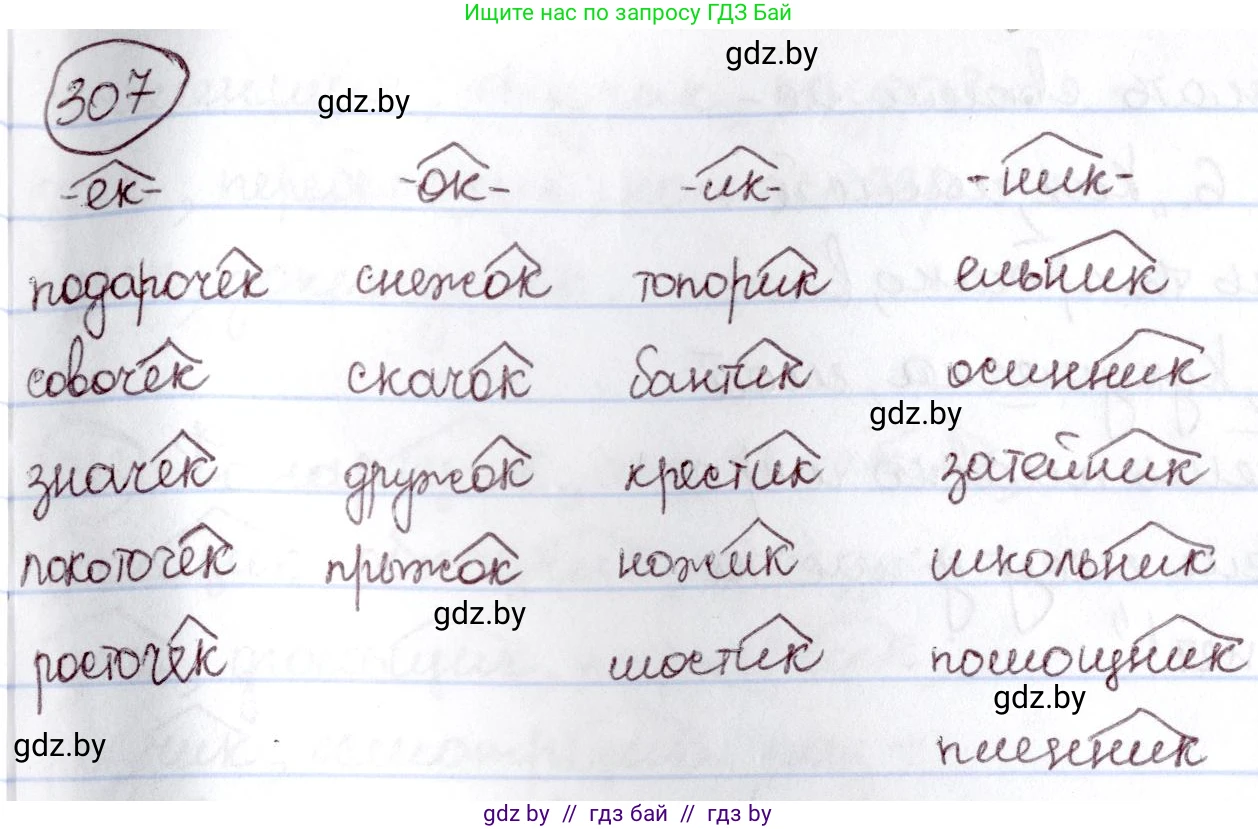 Ищите нас по запросу ГДЗ Бай
gdz.by
307
gdz.by
-ек- -ок- -ик- -ник-
подарочек снежок топорик ельник
совочек скачок бантик осинник
gdz.by
значек дружок крестик затейник
локоточек прыжок ножик школьник
gdz.by
росточек мостик помощник
gdz.by
gdz.by
пшенник
gdz by // гдз бай // гдз by